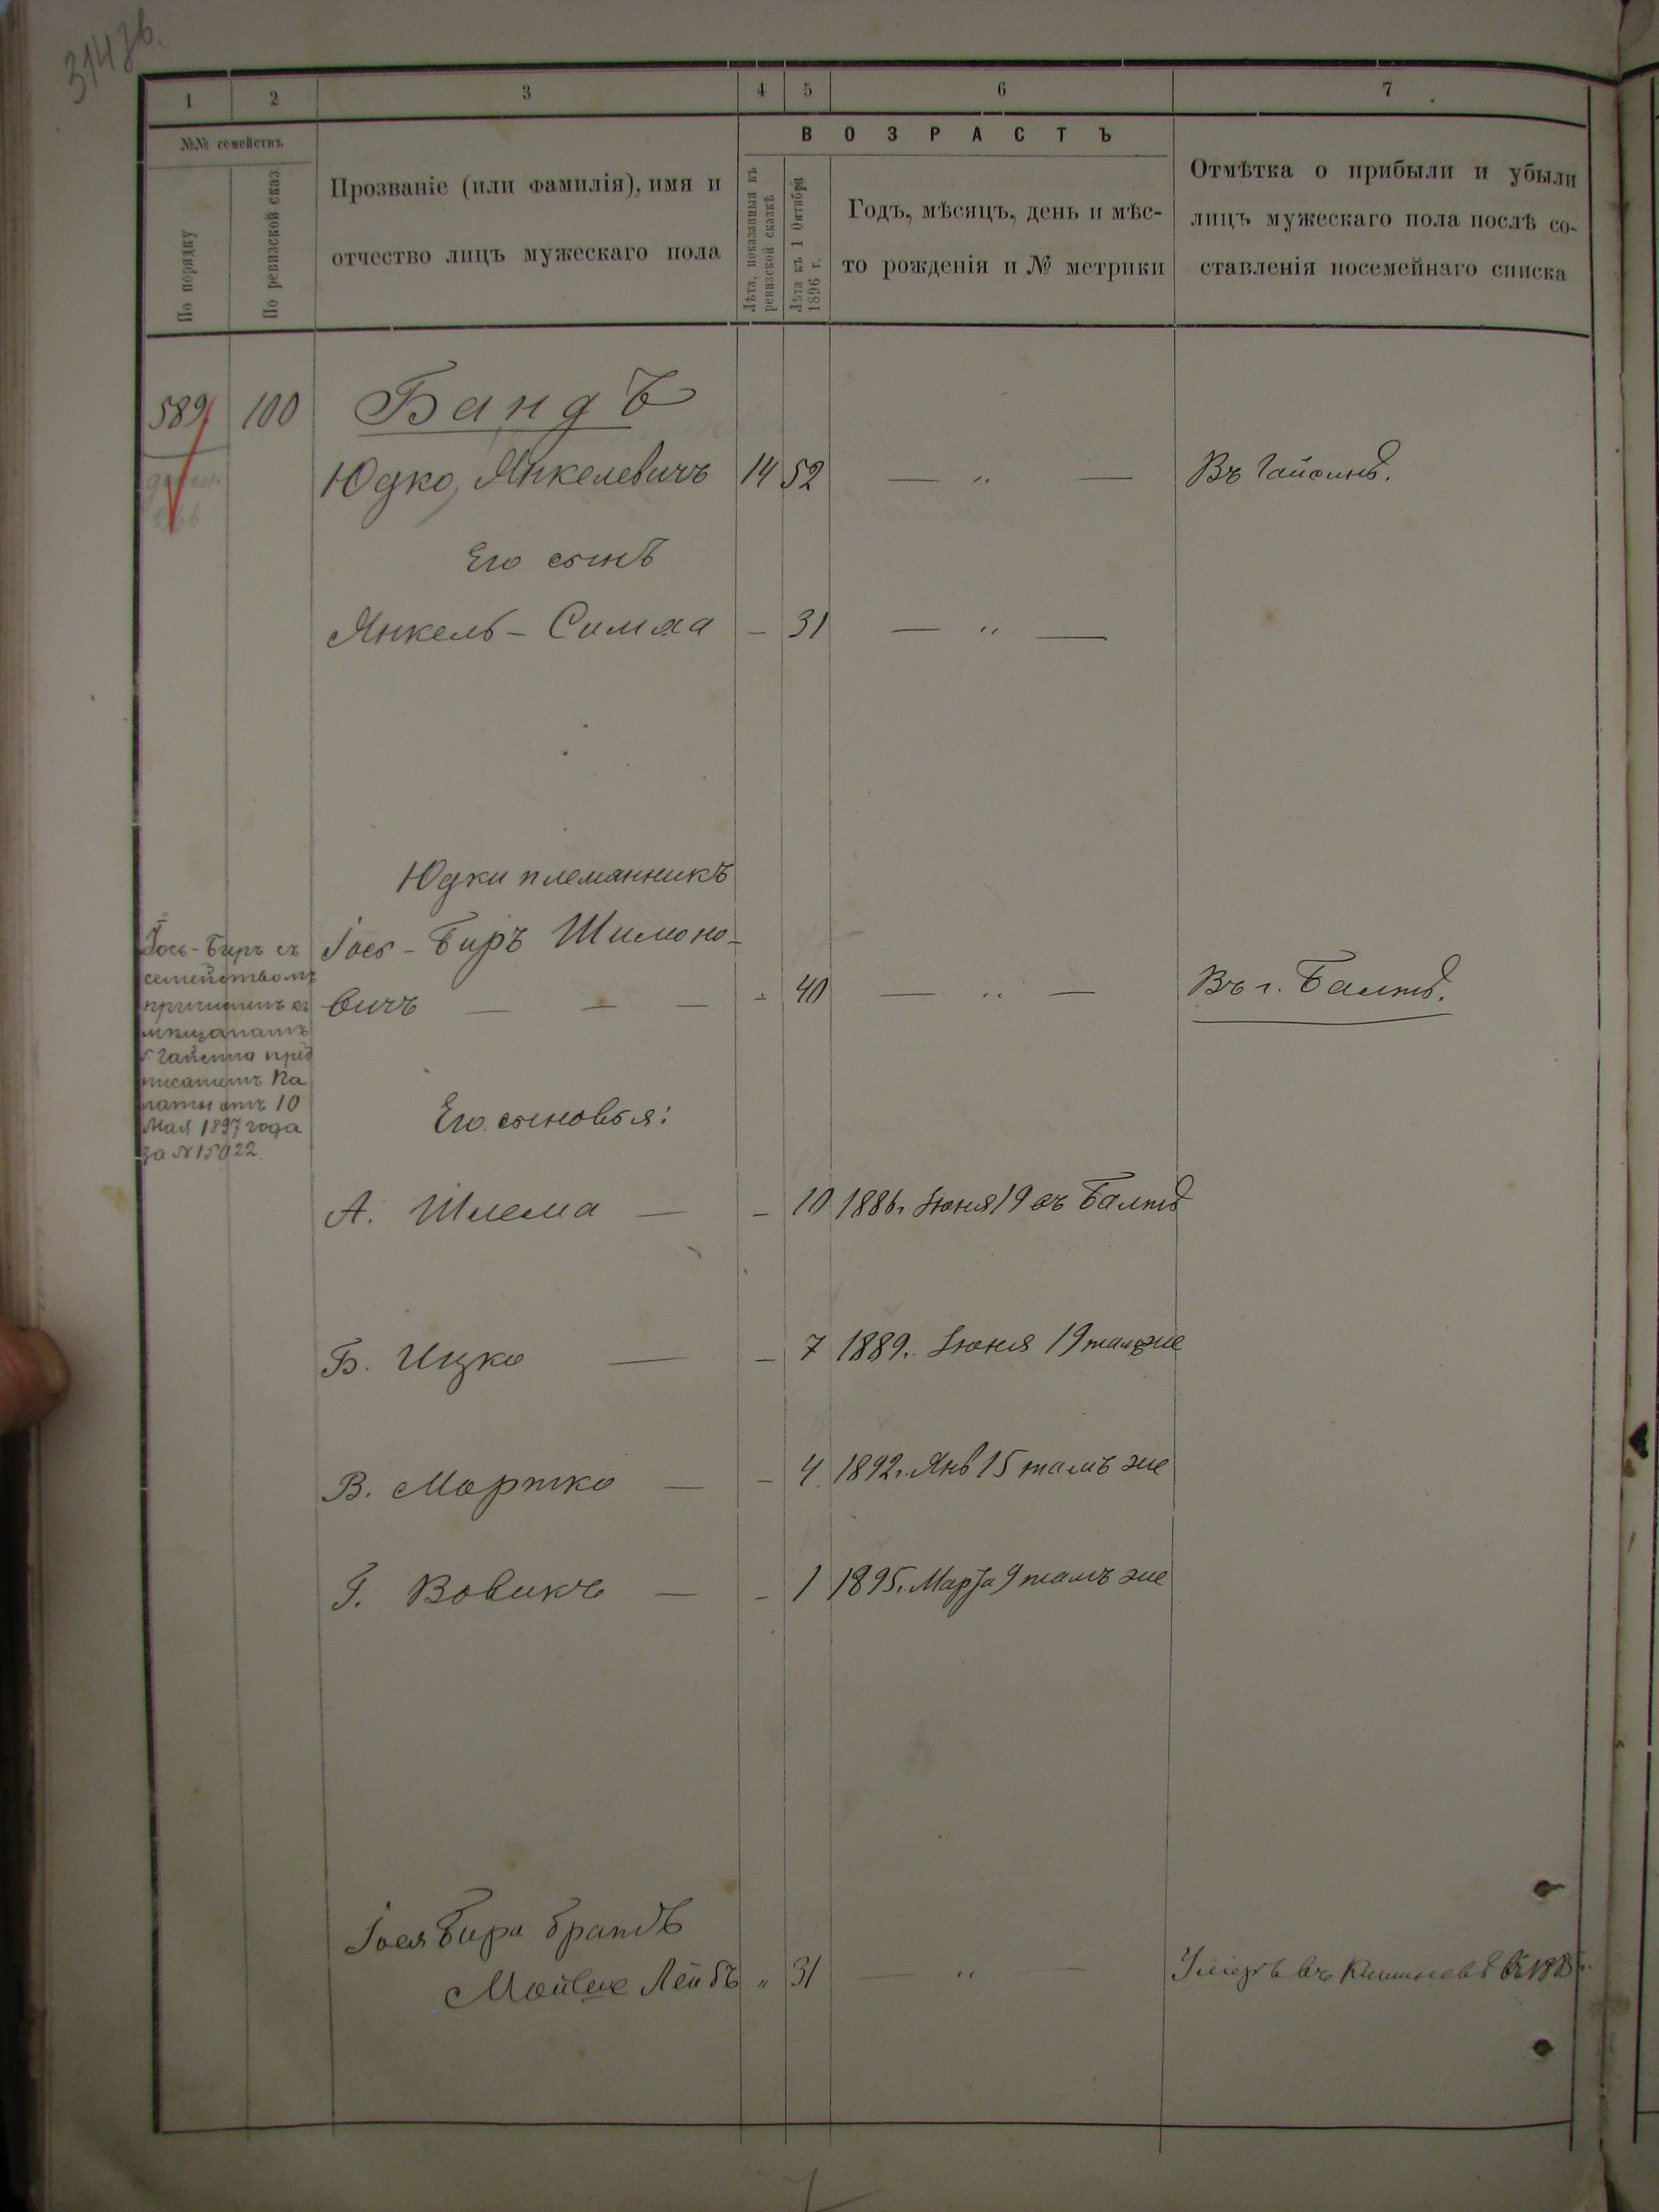 1 2 3 4 5 6 7
№№ семействъ
По порядку
По ревизской сказ.
Прозваніе (или фамилія), имя и
отчество лицъ мужескаго пола
ВОЗРАСТЪ
Лѣта, показанныя въ
ревизской сказкѣ
Лѣта къ 1 Октября
1896 г.
Годъ, мѣсяцъ, день и мѣс-
то рожденія и № метрики
Отмѣтка о прибыли и убыли
лицъ мужескаго пола послѣ со-
ставленія посемейнаго списка
589 100 Бандъ
Юдко Янкелевичъ 14 52 — " — Въ Гайсинѣ.
Его сынъ
Янкель - Симха — 31 — " —
Юдки племянникъ
Іось - Биръ Шимоно-
вичъ — — — - 40 — " — Въ г. Балтѣ.
Іось-Биръ съ
семействомъ
причисленъ къ
мѣщанамъ
г. Гайсина пред
писаніемъ Па
латы отъ 10
Мая 1897 года
за № 15022
Его сыновья:
А. Шлема — - 10 1886. Іюня 19 въ Балтѣ
Б. Ицко — - 7 1889. Іюня 19 тамже
В. Мортко — - 4 1892. Янв 15 тамъ же
Г. Вовикъ — - 1 1895. Марта 9 тамъ же
Іося Бира братъ
Мойше Лейбъ " 31 — " — Умеръ въ Кишиневѣ